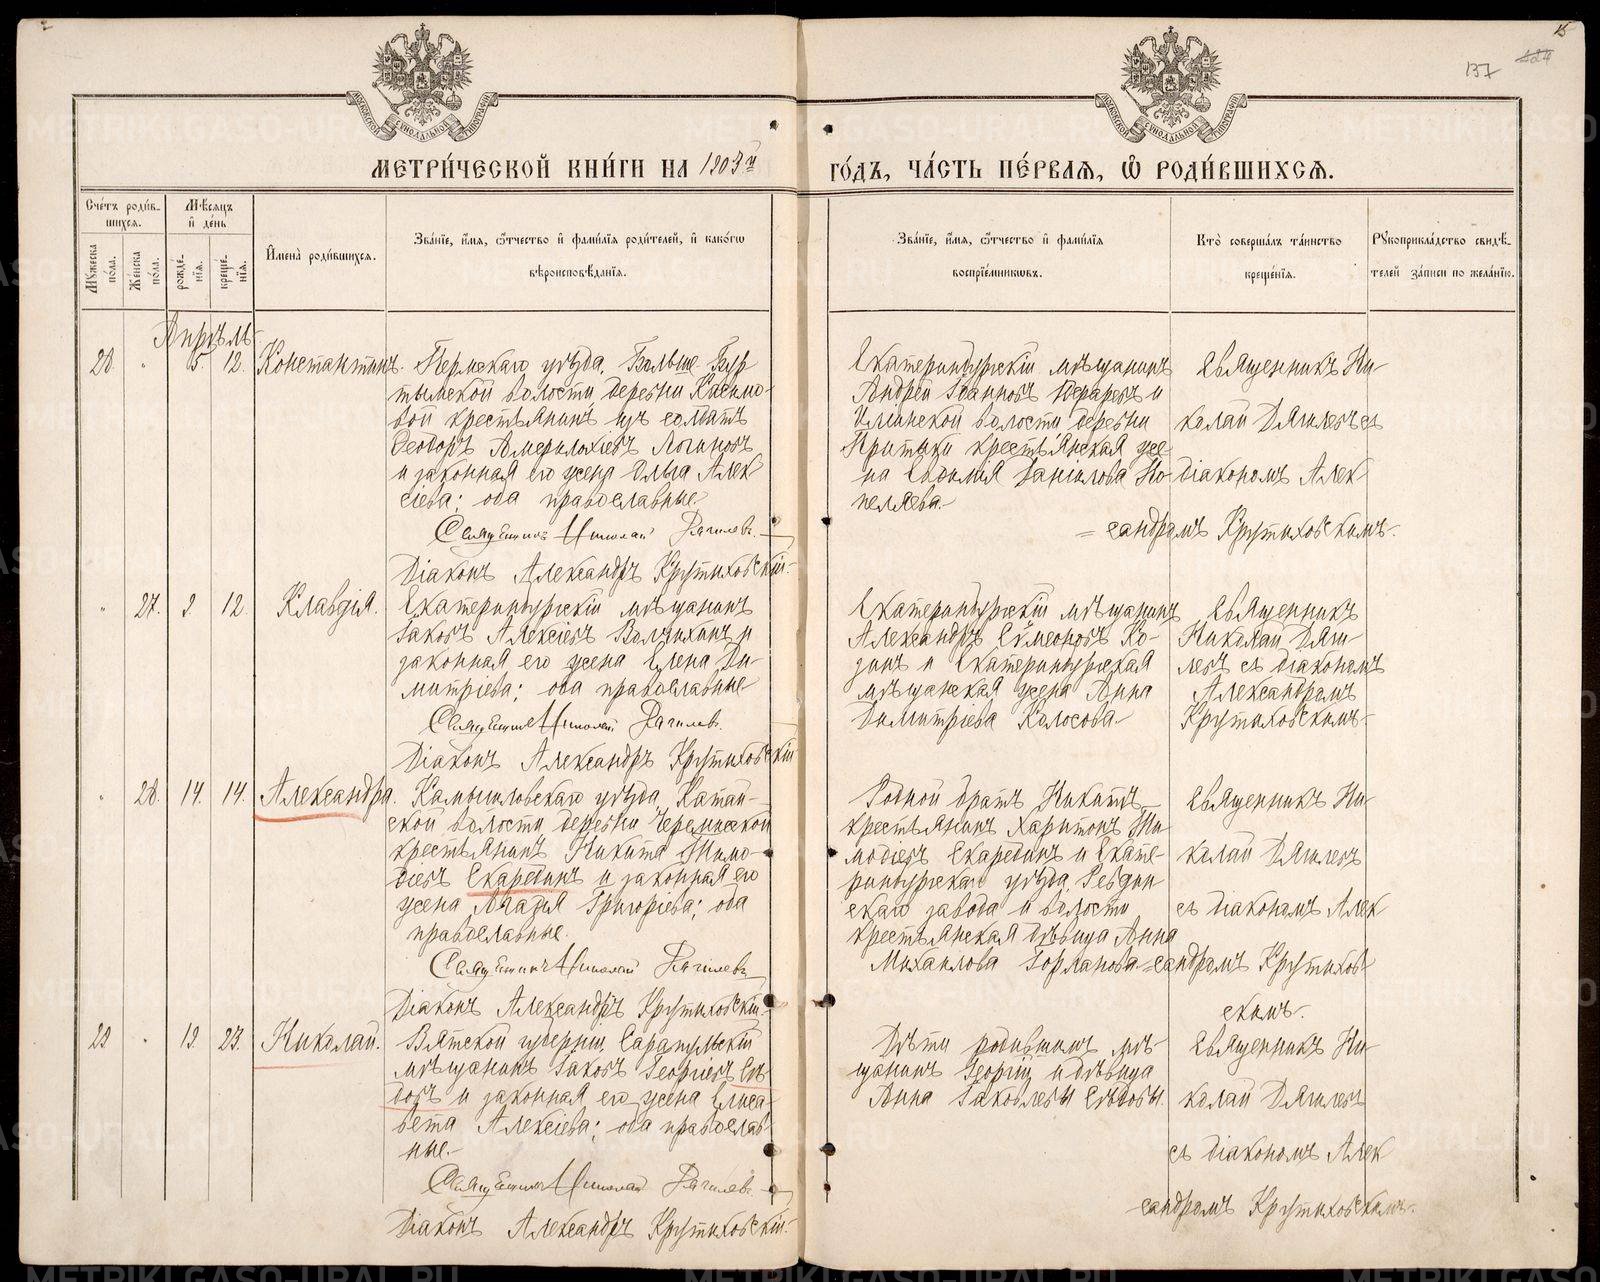 15
137
МОСКОВСКОЙ СѴНОДАЛЬНОЙ ТИПОГРАФІИ
МОСКОВСКОЙ СѴНОДАЛЬНОЙ ТИПОГРАФІИ
МЕТРИ́ЧЕСКОЙ КНИ́ГИ НА 1903й
ГО́ДЪ, ЧА́СТЬ ПЕ́РВАЯ, Ѽ РОДИ́ВШИХСЯ.
Сче́тъ роди́в-
шихся.
Мѣ́сяцъ
и҆ де́нь
Мꙋ́жеска
по́ла.
Же́нска
по́ла.
рожде-
нїя.
креще-
нїя.
И҆мена̀ роди́вшихся.
Зва́нїе, и҆́мя, ѻ҆́тчество и҆ фами́лїя роди́телей, и҆ како́гѡ
вѣроисповѣ́данїя.
Зва́нїе, и҆́мя, ѻ҆́тчество и҆ фами́лїя
воспрїе́мникѡвъ.
Кто̀ соверша́лъ та́инство
креще́нїя.
Рꙋкоприкла́дство свидѣ́-
телей за́писи по жела́нїю.
Апрѣль
28. " 5. 12. Константинъ. Пермскаго уѣзда, Больше-Бур
тымской волости деревни Касимо-
вой крестьянинъ изъ солдатъ
Ѳеодоръ Логиновъ
и законная его жена Ольга Алек
сіева; оба православные
Священникъ Николай Дягилевъ
Діаконъ Александръ Крутиховскій.
Екатеринбургскій мѣщанинъ
Андрей Іоанновъ и
волости деревни
крестьянская же-
на Евѳимія Даніилова Ко-
пелева.
Священникъ Ни-
колай Дягилевъ съ
діакономъ Алек
сандромъ Крутиховскимъ.
" 27. 9. 12. Клавдія. Екатеринбургскій мѣщанинъ
Іаковъ Алексіевъ Волчихинъ и
законная его жена Елена Ди-
митріева; оба православные
Священникъ Николай Дягилевъ
Діаконъ Александръ Крутиховскій
Екатеринбургскій мѣщанинъ
Александръ Сѵмеоновъ Ко-
зинъ и Екатеринбургская
мѣщанская жена Анна
Димитріева Колосова
Священникъ
Николай Дяги-
левъ съ діакономъ
Александромъ
Крутиховскимъ.
" 28. 14. 14. Александра. Камышловскаго уѣзда, Катай-
ской волости деревни Черемисской
крестьянинъ Никита Тимо-
ѳіевъ Скарединъ и законная его
жена Агаѳія Григоріева; оба
православные.
Священникъ Николай Дягилевъ
Діаконъ Александръ Крутиховскій.
Родной братъ Никиты
крестьянинъ Харитонъ Ти-
моѳіевъ Скарединъ и Екате-
ринбургскаго уѣзда, Ревдин
скаго завода и волости
крестьянская дѣвица Анна
Михаилова Горланова
Священникъ Ни-
колай Дягилевъ
съ діакономъ Алек
сандромъ Крутихов-
скимъ.
29 " 19. 23. Николай. Вятской губерніи, Сарапульскій
мѣщанинъ Іаковъ Георгіевъ Сѣ-
довъ и законная его жена Елиса-
вета Алексіева; оба православ-
ные.
Священникъ Николай Дягилевъ
Діаконъ Александръ Крутиховскій.
Дѣти родившихъ мѣ-
щанинъ Георгій и дѣвица
Анна Іаковлевы Сѣдовы.
Священникъ Ни-
колай Дягилевъ
съ діакономъ Алек
сандромъ Крутиховскимъ.